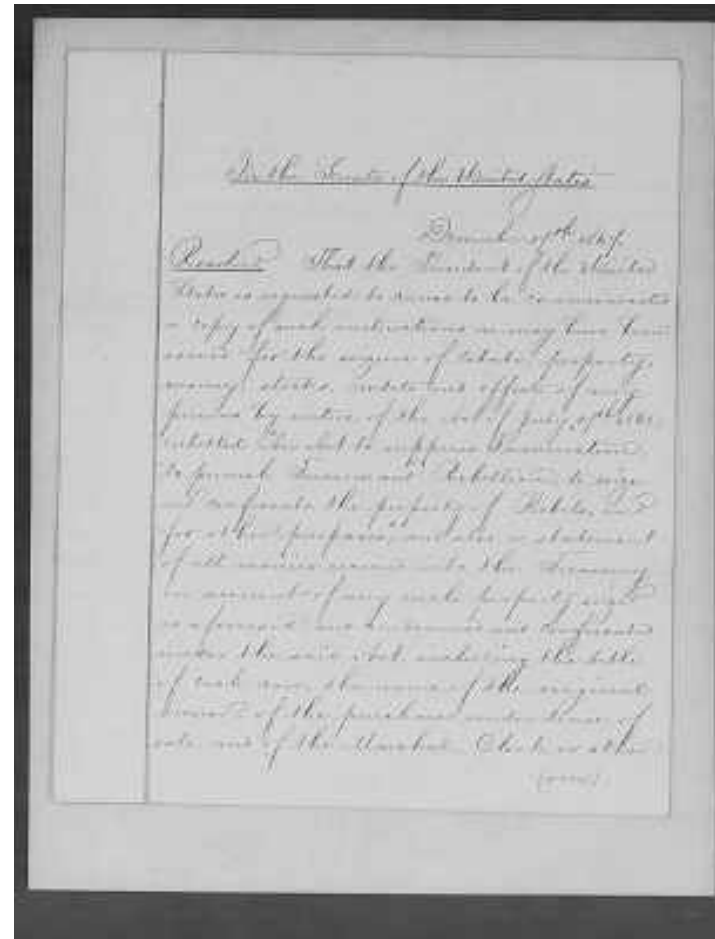 In the Senate of the United States
December 1867.
Resolved That the President of the United
States is requested to cause to be communicated
a copy of such instructions as may have been
issued for the seizure of estate, property,
money, stocks, credits and effects of any
person by virtue of the act of July 17th 1862
entitled "An Act to suppress Insurrection
to punish Treason and Rebellion, to seize
and confiscate the property of Rebels, and
for other purposes," and also a statement
of all moneys received into the Treasury
on account of any such property seized
as aforesaid and condemned and confiscated
under the said Act, including the title
of each case, the name of the original
owner, of the purchaser under decree of
sale and of the Marshal, Clerk or other
(over)